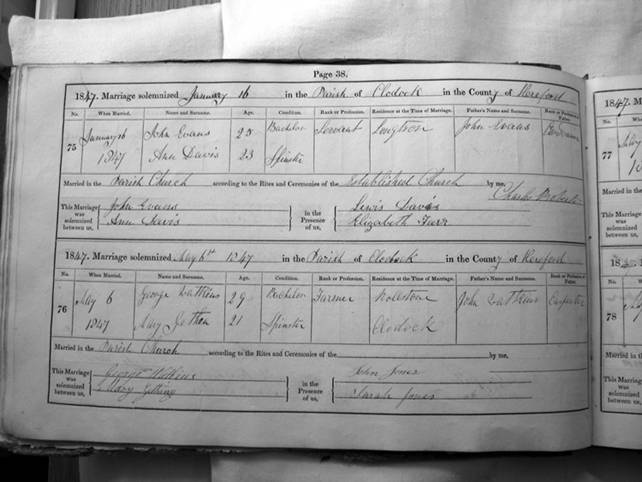 Page 38.
1847. Marriage solemnized January 16 in the Parish of Clodock in the County of Hereford
No. When Married. Name and Surname. Age. Condition. Rank or Profession. Residence at the Time of Marriage. Father's Name and Surname. Rank or Profession of Father.
75 January 16 John Evans 25 Bachelor Servant Longtown John Evans
1847 Ann Davis 23 Spinster
Married in the Parish Church according to the Rites and Ceremonies of the Established Church by me,
Charles
This Marriage was solemnized between us, John Evans Ann Davis in the Presence of us, Lewis Davis Elizabeth
1847. Marriage solemnized May 6th 1847 in the Parish of Clodock in the County of Hereford
No. When Married. Name and Surname. Age. Condition. Rank or Profession. Residence at the Time of Marriage. Father's Name and Surname. Rank or Profession of Father.
76 May 6 George Watkins 29 Bachelor Farmer John Watkins Carpenter
1847 Mary 21 Spinster Clodock
Married in the Parish Church according to the Rites and Ceremonies of the by me,
This Marriage was solemnized between us, George Watkins Mary in the Presence of us, John Jones Sarah Jones
77
78